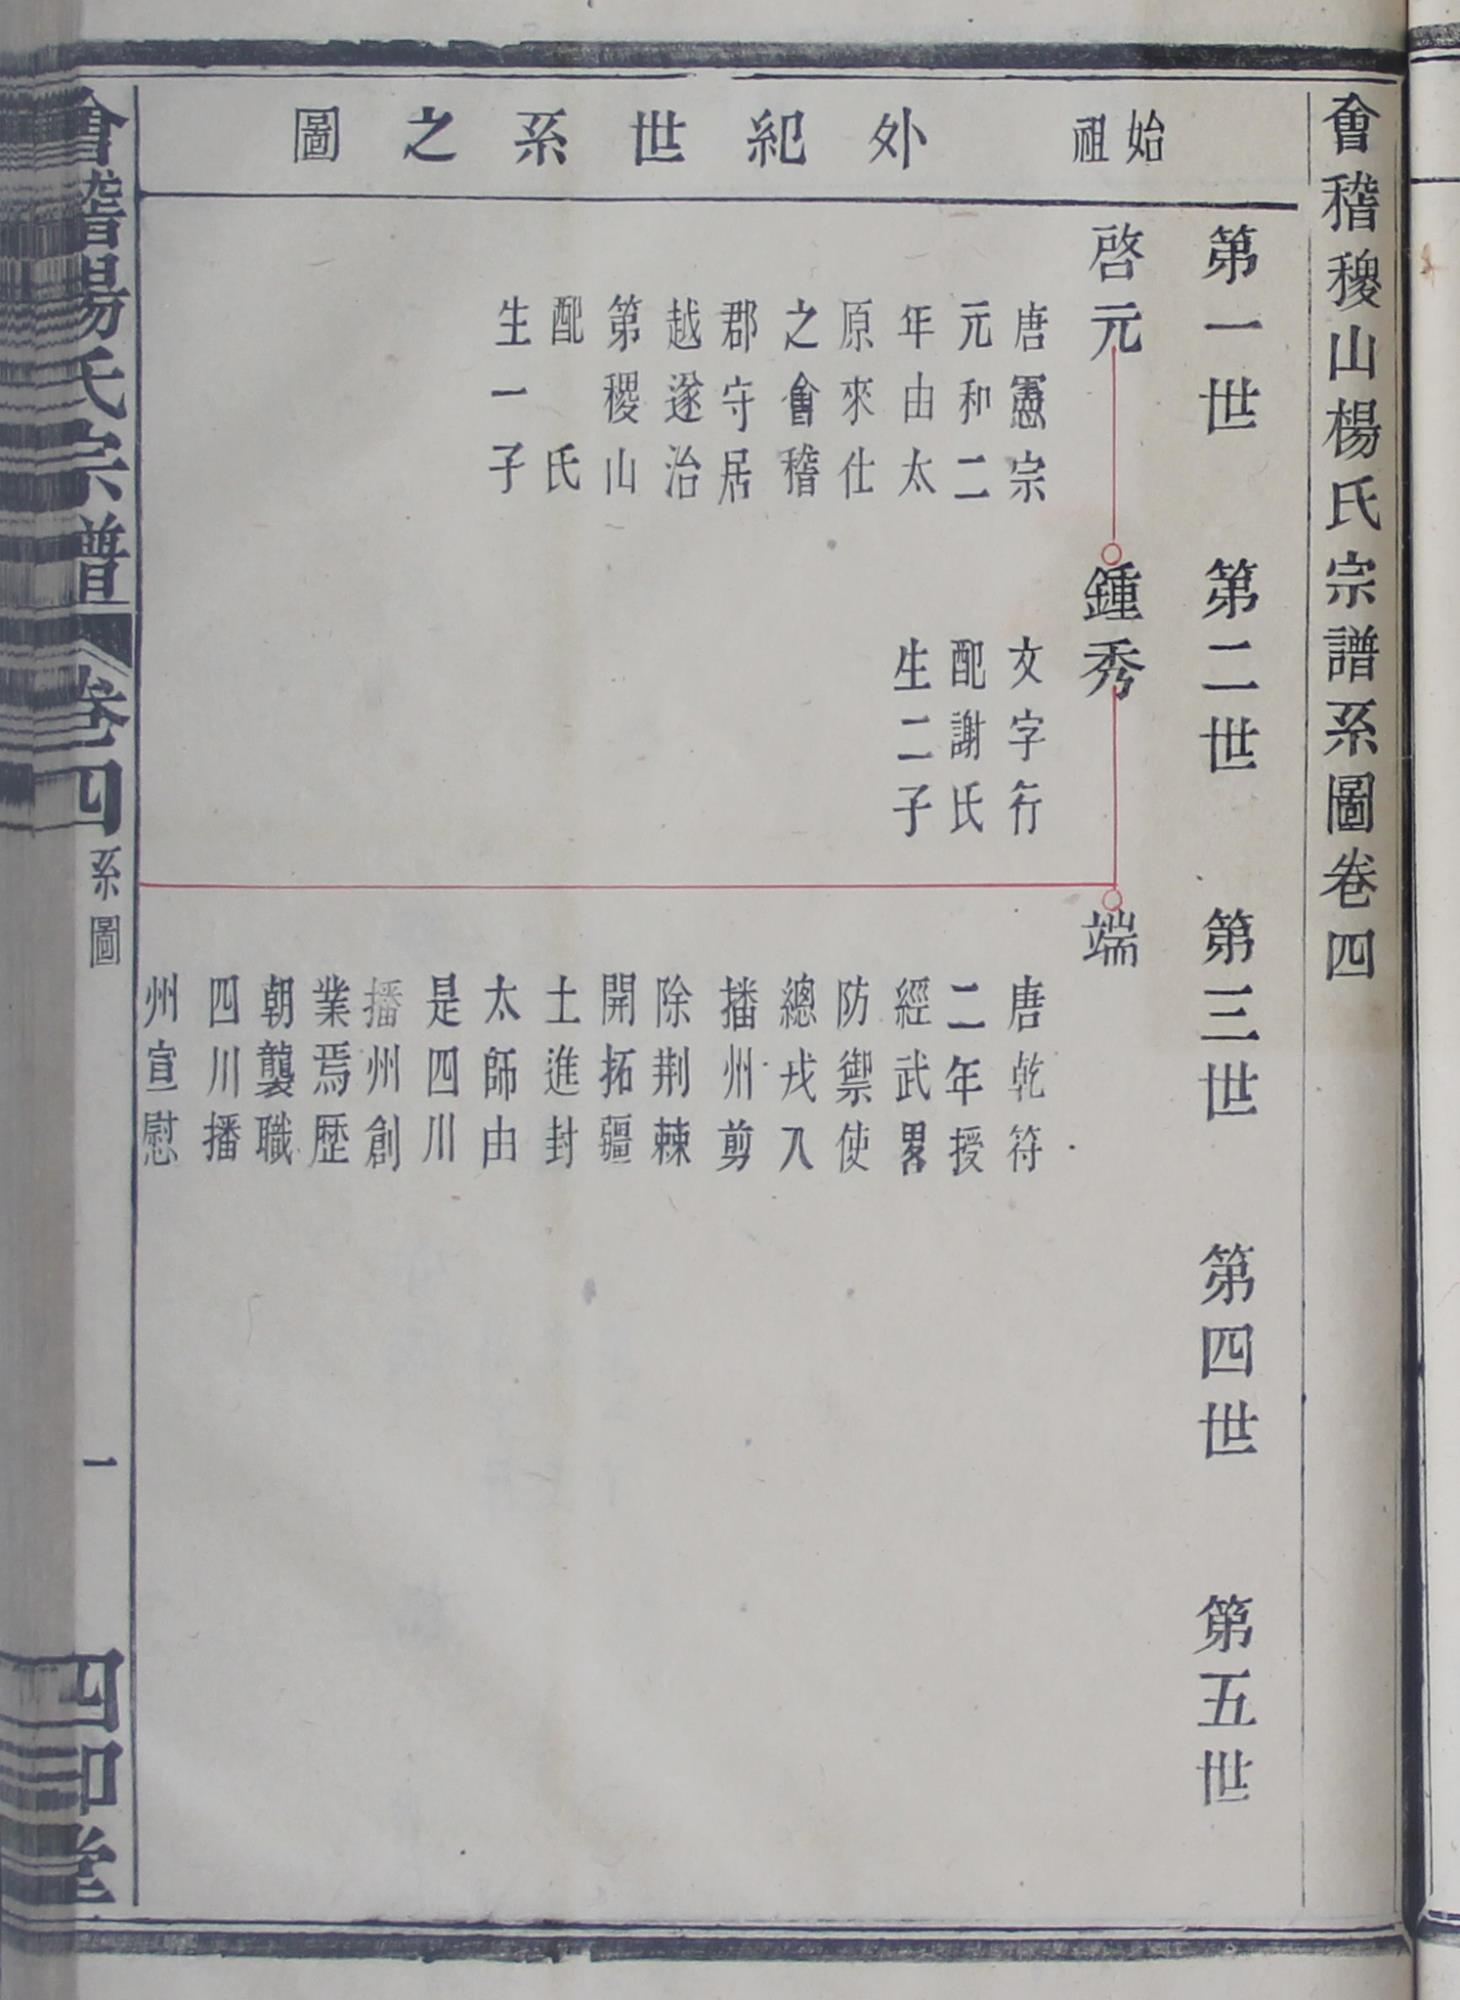 會稽稷山楊氏宗譜系圖卷四
始祖
外紀世系之圖
第一世
第二世
第三世
第四世
第五世
啓元
唐憲宗
元和二
年由太
原來仕
之會稽
郡守居
越遂治
第稷山
配　氏
生一子
鍾秀
文字行
配謝氏
生二子
端
唐乾符
二年授
經武畧
防禦使
總戎入
播州剪
除荆棘
開拓疆
土進封
太師由
是四川
播州創
業焉歴
朝襲職
四川播
州宣慰
會稽楊氏宗譜
卷四
系圖
一
四知堂